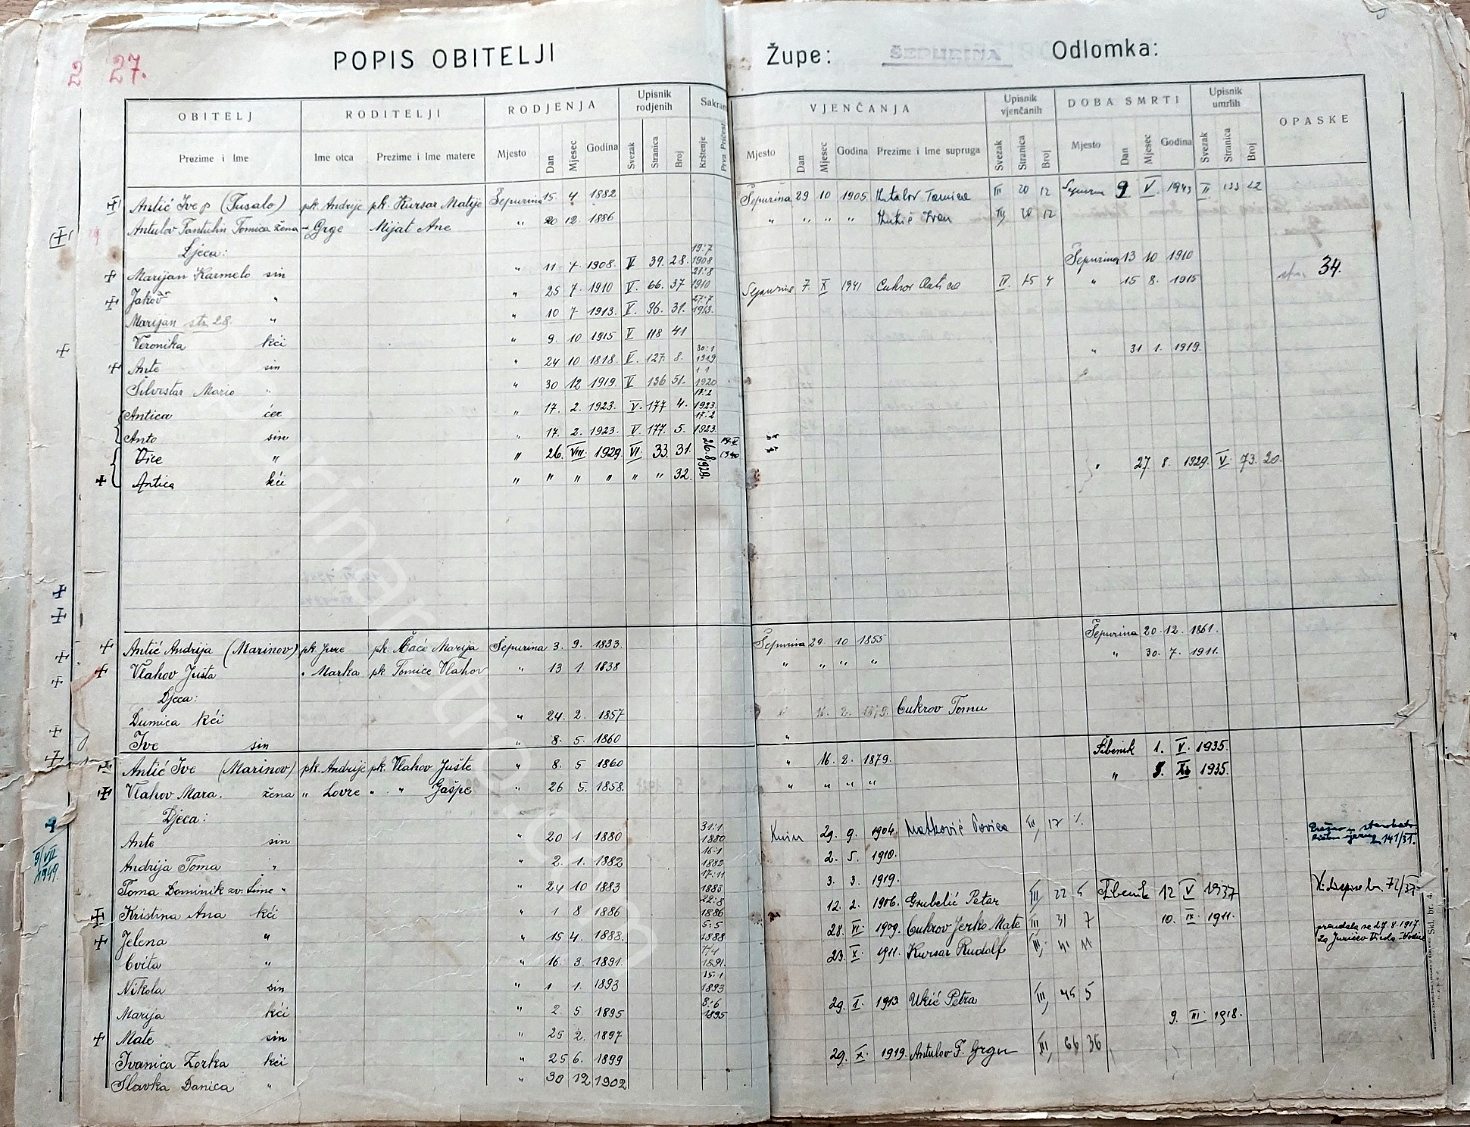 27.
POPIS OBITELJI
Župe: ŠEPURINA Odlomka:
OBITELJ RODITELJI RODJENJA Upisnik rodjenih Sakram VJENČANJA Upisnik vjenčanih DOBA SMRTI Upisnik umrlih OPASKE
Prezime i Ime Ime otca Prezime i Ime matere Mjesto Dan Mjesec Godina Svezak Stranica Broj Krštenje Prva Pričest Mjesto Dan Mjesec Godina Prezime i Ime supruga Svezak Stranica Broj Mjesto Dan Mjesec Godina Svezak Stranica Broj
Antić Ive p (Fusalo) pk. Andrije pk. Kursar Matije Šepurina 15 4 1882 Šepurina 29 10 1905 III 20 12 9 V 1943 II
Antulov Fantulin Tomica žena Grge Mijat Ane " 20 12 1886 " " " " 20 12
Djeca:
Marijan Karmelo sin " 11 7 1908. V 39. 28. 19.7 1908 Šepurina 13 10 1910
Jakov " " 25 7. 1910 V. 66. 37 21.8 1910 Šepurina 7. X 1941 IV. 4 " 15 8. 1915 34.
Marijan str. 28. " " 10 7. 1913. V. 96. 31. 27.7 1913.
Veronika kći " 9. 10 1915 V 118 41
Ante sin " 24 10 1818. V. 127. 8. 30.1 1919 " 31 1. 1919.
Silvestar Mario " " 30 12 1919 V 136 51. 1.1 1920
Antica kći " 17. 2. 1923. V. 177 4. 17.2 1923
Anto sin " 17. 2. 1923. V. 177. 5. 17.2 1923.
Vice " " 26. VIII. 1929 VI 33. 31. 26.8.1929. 1940
Antica kći " " " " " " 32. " 27. 8. 1929. V. 73. 20.
Antić Andrija (Marinov) pk Jure pk. Ćaće Marija Šepurina 3. 9. 1833 Šepurina 29. 10 1855 Šepurina 20. 12. 1861.
Vlahov Justa " Marka pk Tomice Vlahov " 13 1 1838 " " " " " 30. 7. 1911.
Djeca:
Dumica kći " 24 2. 1857 Cukrov Tomu
Ive sin " 8. 5. 1860 "
Antić Ive (Marinov) pk. Andrije pk. Vlahov Juste " 8. 5 1860 " 16. 2. 1879. Šibenik 1. V. 1935.
Vlahov Mara. žena " Lovre " " Gašpe " 26 5. 1858. " " " " " XII 1935.
Djeca:
Ante sin " 20 1 1880 31.1 1880 Knin 29. 9. 1904. Matković III, 17
Andrija Toma " " 2. 1. 1882 16.1 1882 2. 5. 1910.
Toma Dominik zv. Šime " " 24 10 1883 17.11 1883 3. 3. 1919.
Kristina Ana kći " 1 8 1886 22.8 1886 12. 2. 1906. Grubelić Petar III 22 5 Šibenik 12 V 1937
Jelena " " 15 4. 1888. 5.5 1888 28. VI. 1909. Cukrov Jerko Mate III 31 7 10. IX. 1911.
Cvita " " 16. 3. 1891. 1891. 23. X. 1911. Kursar Rudolf III, 41 11
Nikola sin " 1 1. 1893 15.1 1893
Marija kći " 2 5 1895 8.6 1895 29. X. 1913 Ukić Petra III, 45 5
Mate sin " 25 2. 1897 9. III. 1918.
Ivanica Zorka kći " 25 6. 1899 29. X. 1919. Antulov F. Grgu III, 66 36
Slavka Danica " " 30 12 1902